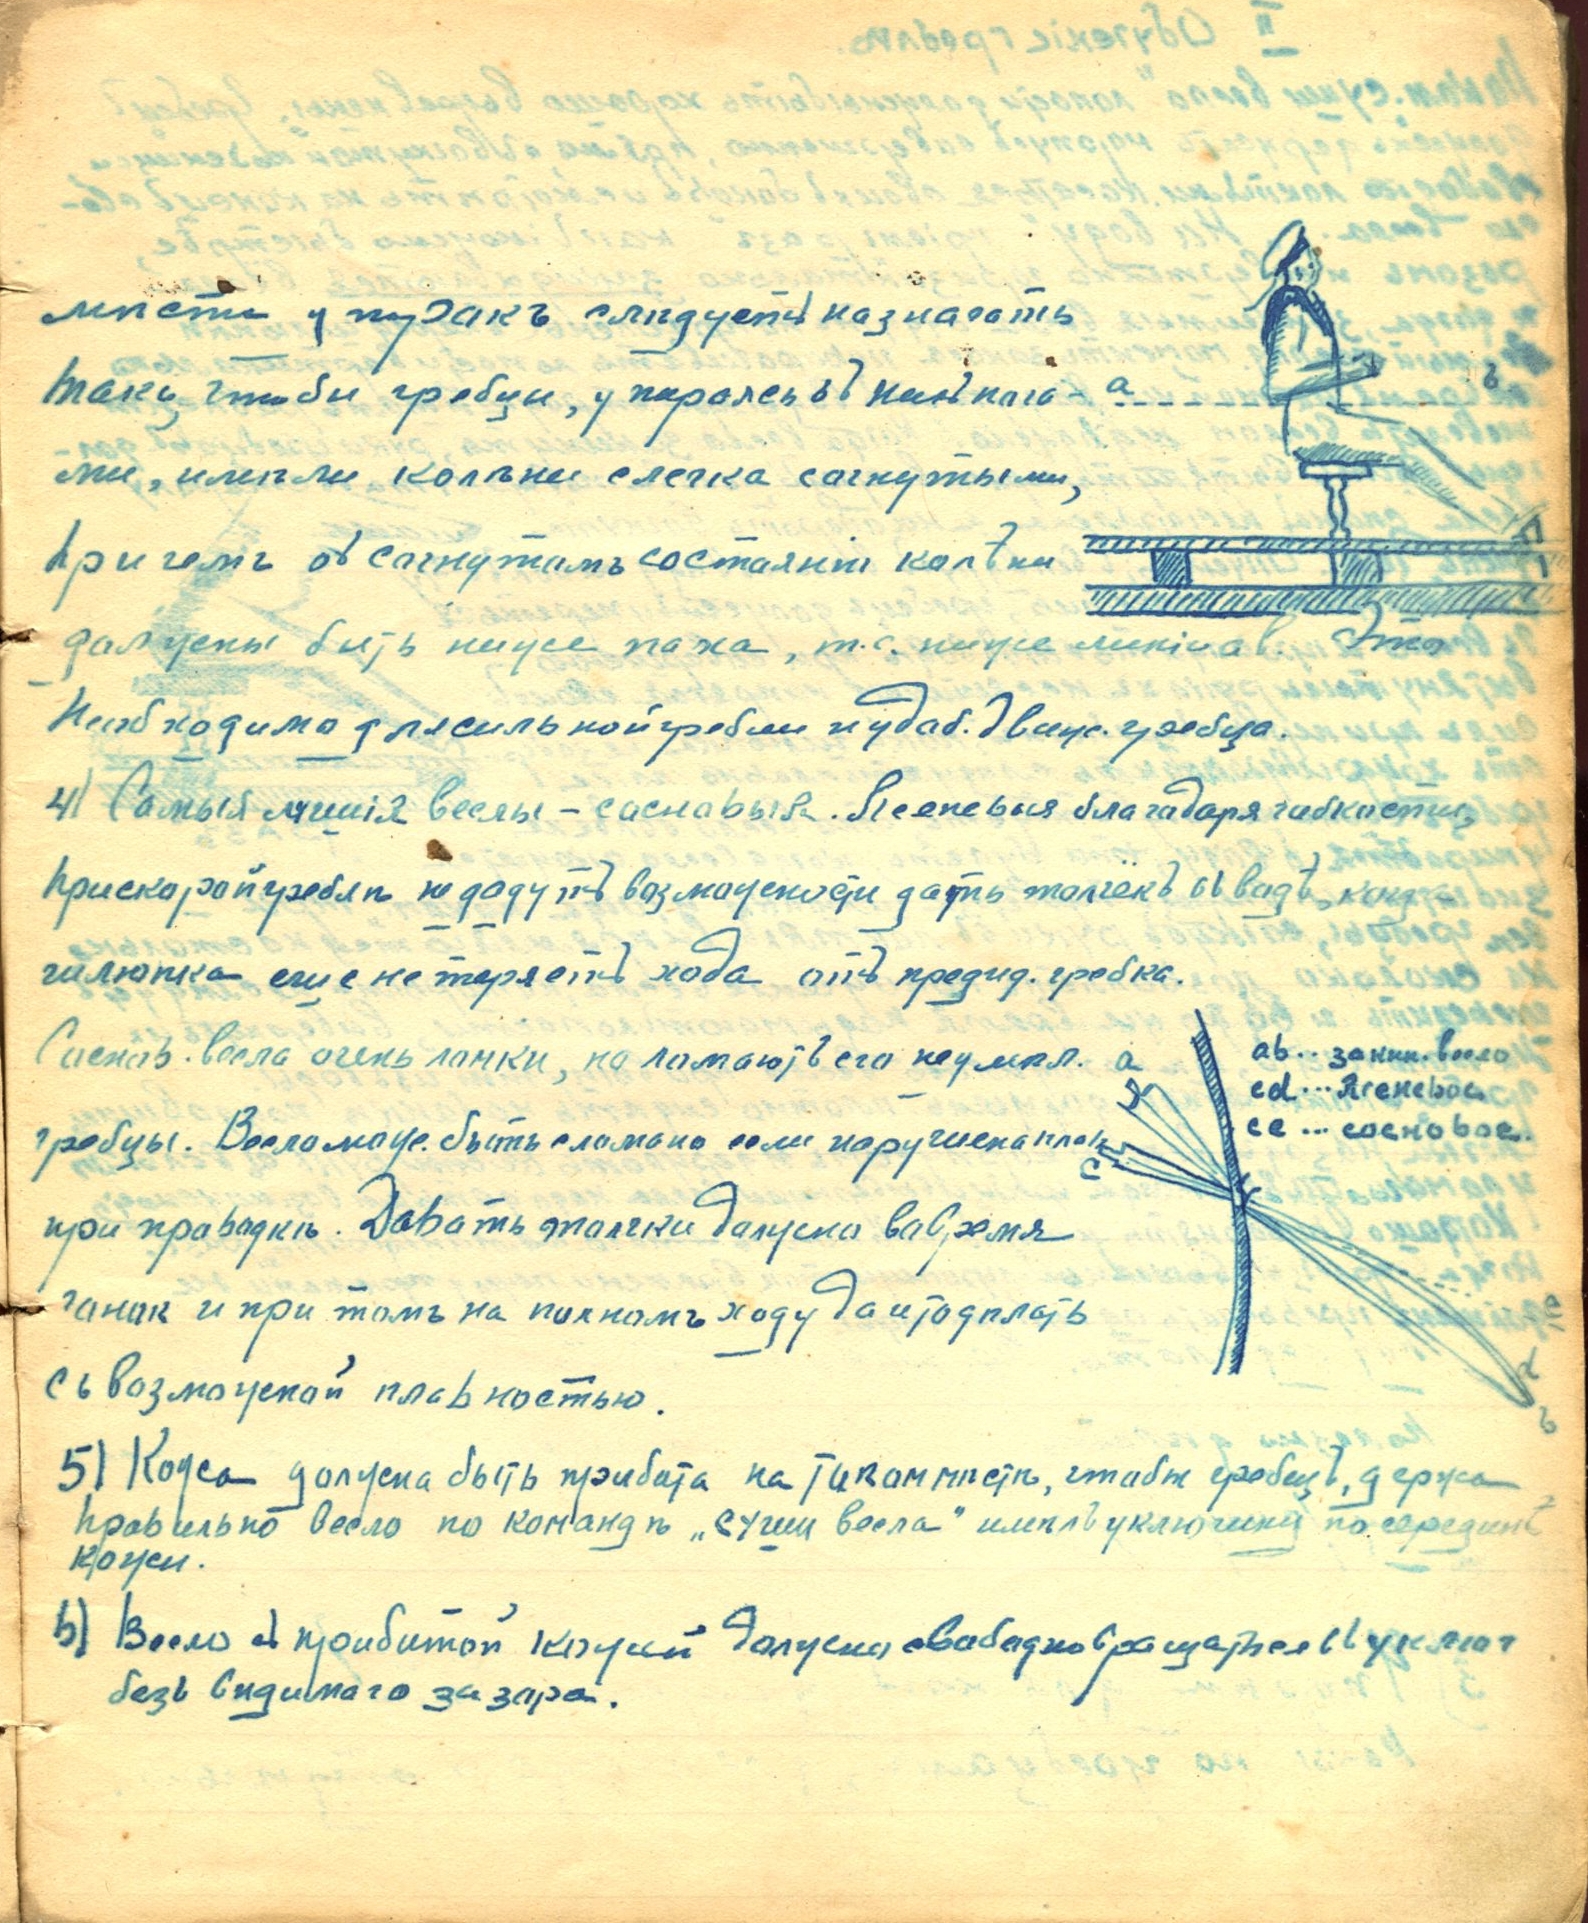 мѣста упорокъ слѣдуетъ назначать
такъ, чтобы гребцы, упираясь въ нихъ нога-
ми, имѣли колѣни слегка согнутыми,
причемъ въ согнутомъ состоянiи колѣни
должны быть ниже паха, т.е. ниже линiи ав. Это
необходимо для сильной гребли и удоб. движ. гребца.
4) Самыя лучшiя веслы – сосновыя. Ясеневыя благодаря гибкости,
при скорой греблѣ не додутъ возможности дать толчекъ въ водѣ, когд-
шлюпка еще не теряетъ хода отъ предид. гребка.
Соснов. весла очень ломки, но ломаютъ его неумѣл.
гребцы. Весло може. быть сломано если нарушена плав.
при проводкѣ. Давать толчки должно во время
гонок и при томъ на полномъ ходу да и то дѣлать
съ возможной плавностью.
5) Кожа должна быть прибита на такомъ мѣстѣ, чтобы гребецъ, держа
правильно весло по командѣ „суши весла" имѣлъ уключины по серединѣ
кожи.
6) Весло съ прибитой кожей должно свободно вращаться въ уключ
безъ видимаго зазора.
а
в
ab.. заким. весло
cd... Ясеневое
ce... сосновое.
a
c
e
d
b